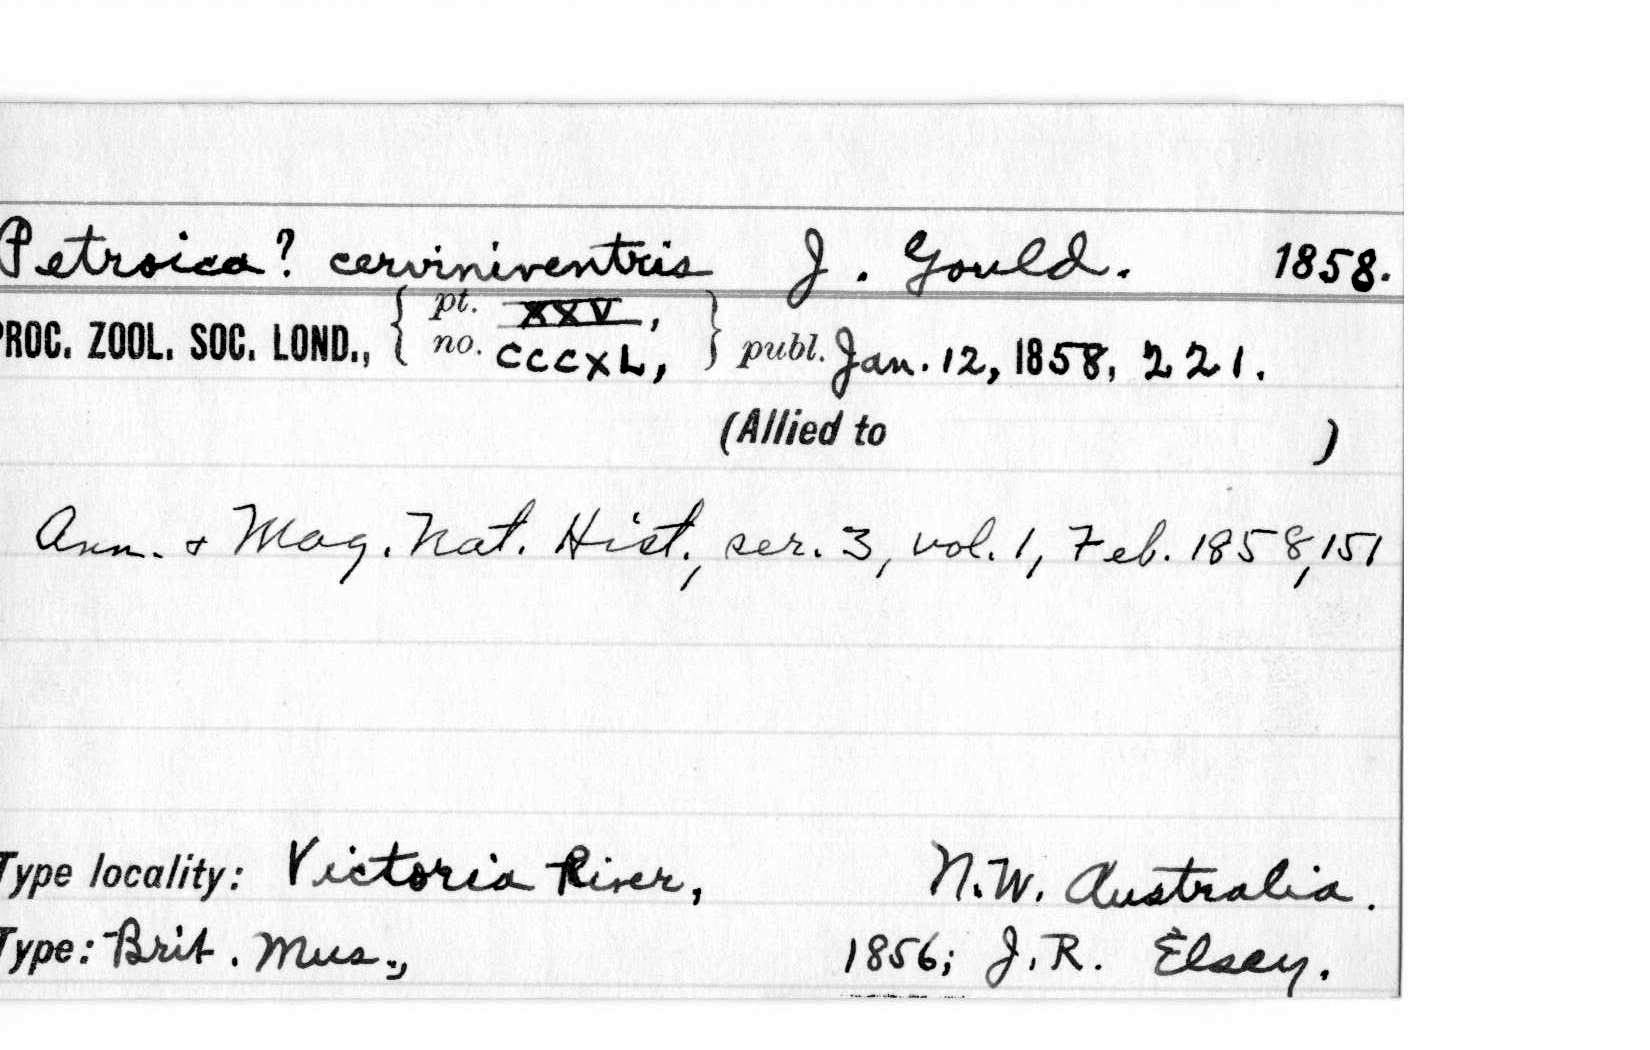 Petroica? cerviniventris J. Gould. 1858.
PROC. ZOOL. SOC. LOND., { pt. XXV, no. CCCXL, } publ. Jan. 12, 1858, 221.
(Allied to )
Ann. & Mag. Nat. Hist., ser. 3, vol. 1, Feb. 1858, 151
Type locality: Victoria River, N.W. Australia.
Type: Brit. Mus., 1856; J. R. Elsey.